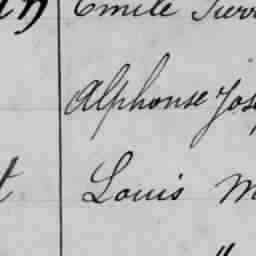 Emile
Alphonse Jos
Louis M